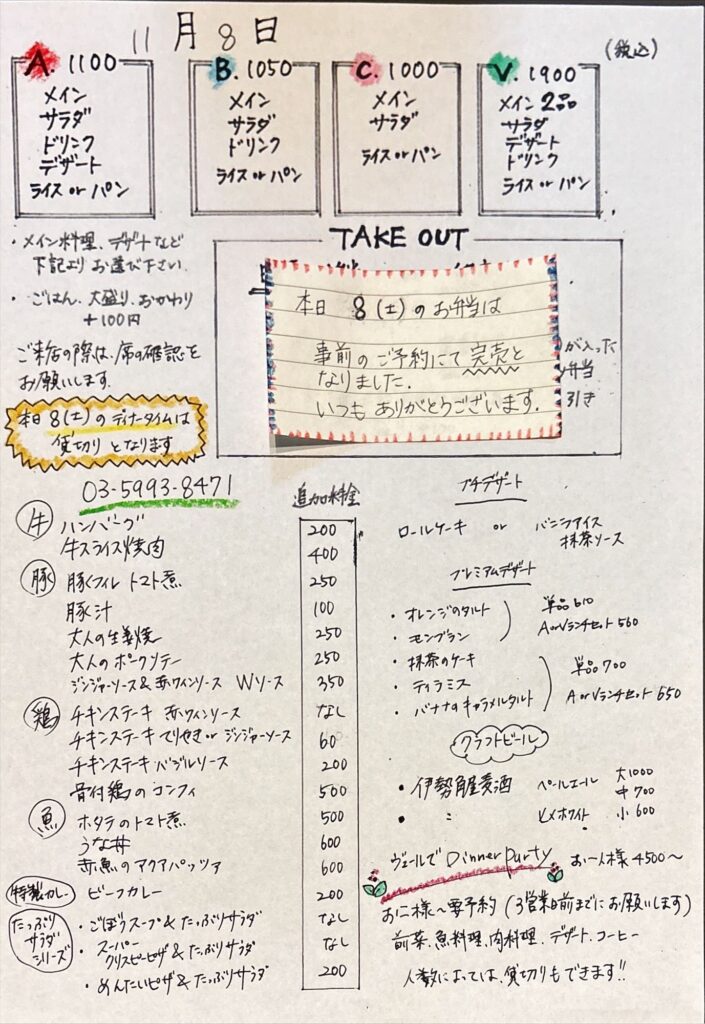 11月8日
(税込)
A. 1100
メイン
サラダ
ドリンク
デザート
ライス or パン
B. 1050
メイン
サラダ
ドリンク
ライス or パン
C. 1000
メイン
サラダ
ライス or パン
V. 1900
メイン2品
サラダ
デザート
ドリンク
ライス or パン
・メイン料理、デザートなど
下記よりお選び下さい。
・ごはん、大盛り、おかわり
+100円
ご来店の際は、席の確認を
お願いします。
本日 8(土)のディナータイムは
貸切りとなります
TAKE OUT
本日 8(土)のお弁当は
事前のご予約にて完売と
なりました.
いつもありがとうございます.
が入った
弁当
引き
03-5993-8471
追加料金
牛
ハンバーグ 200
牛スライス焼肉 400
豚
豚ヒレ トマト煮 250
豚汁 100
大人の生姜焼 250
大人のポークソテー 250
ジンジャーソース&赤ワインソース Wソース 350
鶏
チキンステーキ 赤ワインソース なし
チキンステーキ てりやき or ジンジャーソース 60
チキンステーキ バジルソース 200
骨付鶏のコンフィ 500
魚
ホタテのトマト煮 500
うな丼 600
赤魚のアクアパッツァ 600
特製カレー
ビーフカレー 200
たっぷりサラダシリーズ
・ごぼうスープ&たっぷりサラダ なし
・スーパークリスピーピザ&たっぷりサラダ なし
・めんたいピザ&たっぷりサラダ 200
プチデザート
ロールケーキ or バニラアイス
抹茶ソース
プレミアムデザート
・オレンジのタルト
・モンブラン
単品610
AorVランチセット560
・抹茶のケーキ
・ティラミス
・バナナのキャラメルタルト
単品700
AorVランチセット650
クラフトビール
・伊勢角屋麦酒 ペールエール 大1000
中700
・ 〃 ヒメホワイト 小600
ヴェールで Dinner Party お一人様4500〜
お二様〜要予約(3営業日前までにお願いします)
前菜、魚料理、肉料理、デザート、コーヒー
人数によっては、貸切りもできます!!